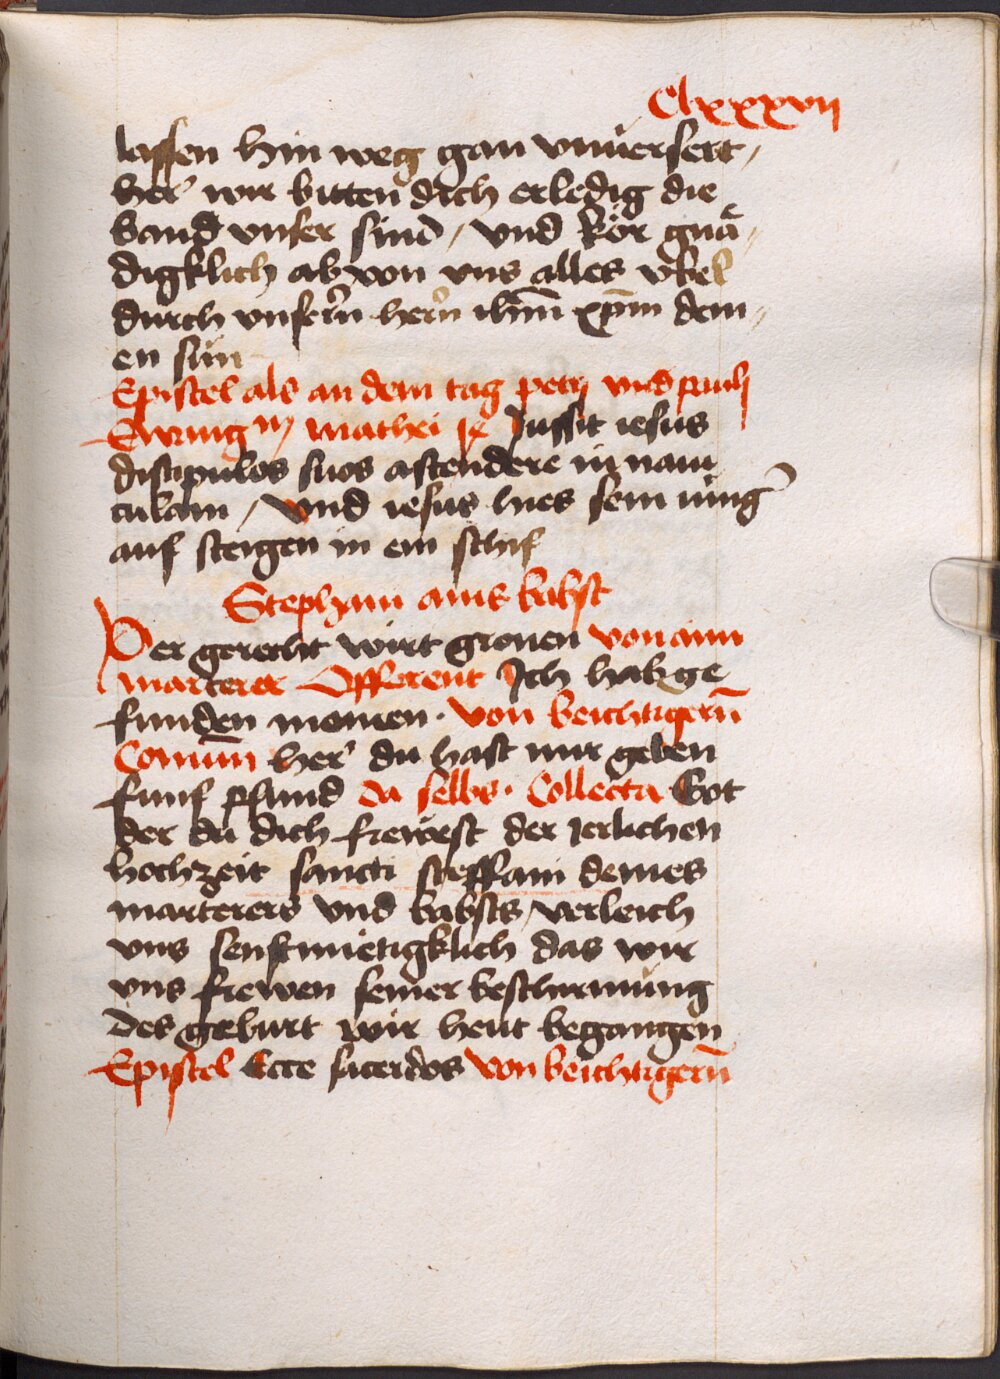 Clxxxvij
lassen hin weg gan vnuersert /
her' wir bitten dich erledig die
band vnser sind / vnd kör gnä /
digklich ab von vns alles vbel
durch vnsern hern ihm̄ xp̄m dein /
en sun
Epistel als an dem tag petrj vnd paulj
Ewang mathei Jussit iesus
discipulos suos ascendere in naui
culam / vnd iesus hies sein iung'
auf steigen in ein schif
Stephani ains babst
Der gerecht wirt gronen von aim
marterer Offerent Ich hab ge
funden meinen · von beichtigern̄
Comūn her' du hast mir geben
funf pfund da selbs · Collecta Got
der du dich frewest der jerlichen
hochzeit sancti steffani deines
marterers vnd babsts / verleich
vns senftmietigklich das wir
vns frewen seiner beschirmung
des geburt wir heut begangen
Epistel Ecce sacerdos von beichtigern̄